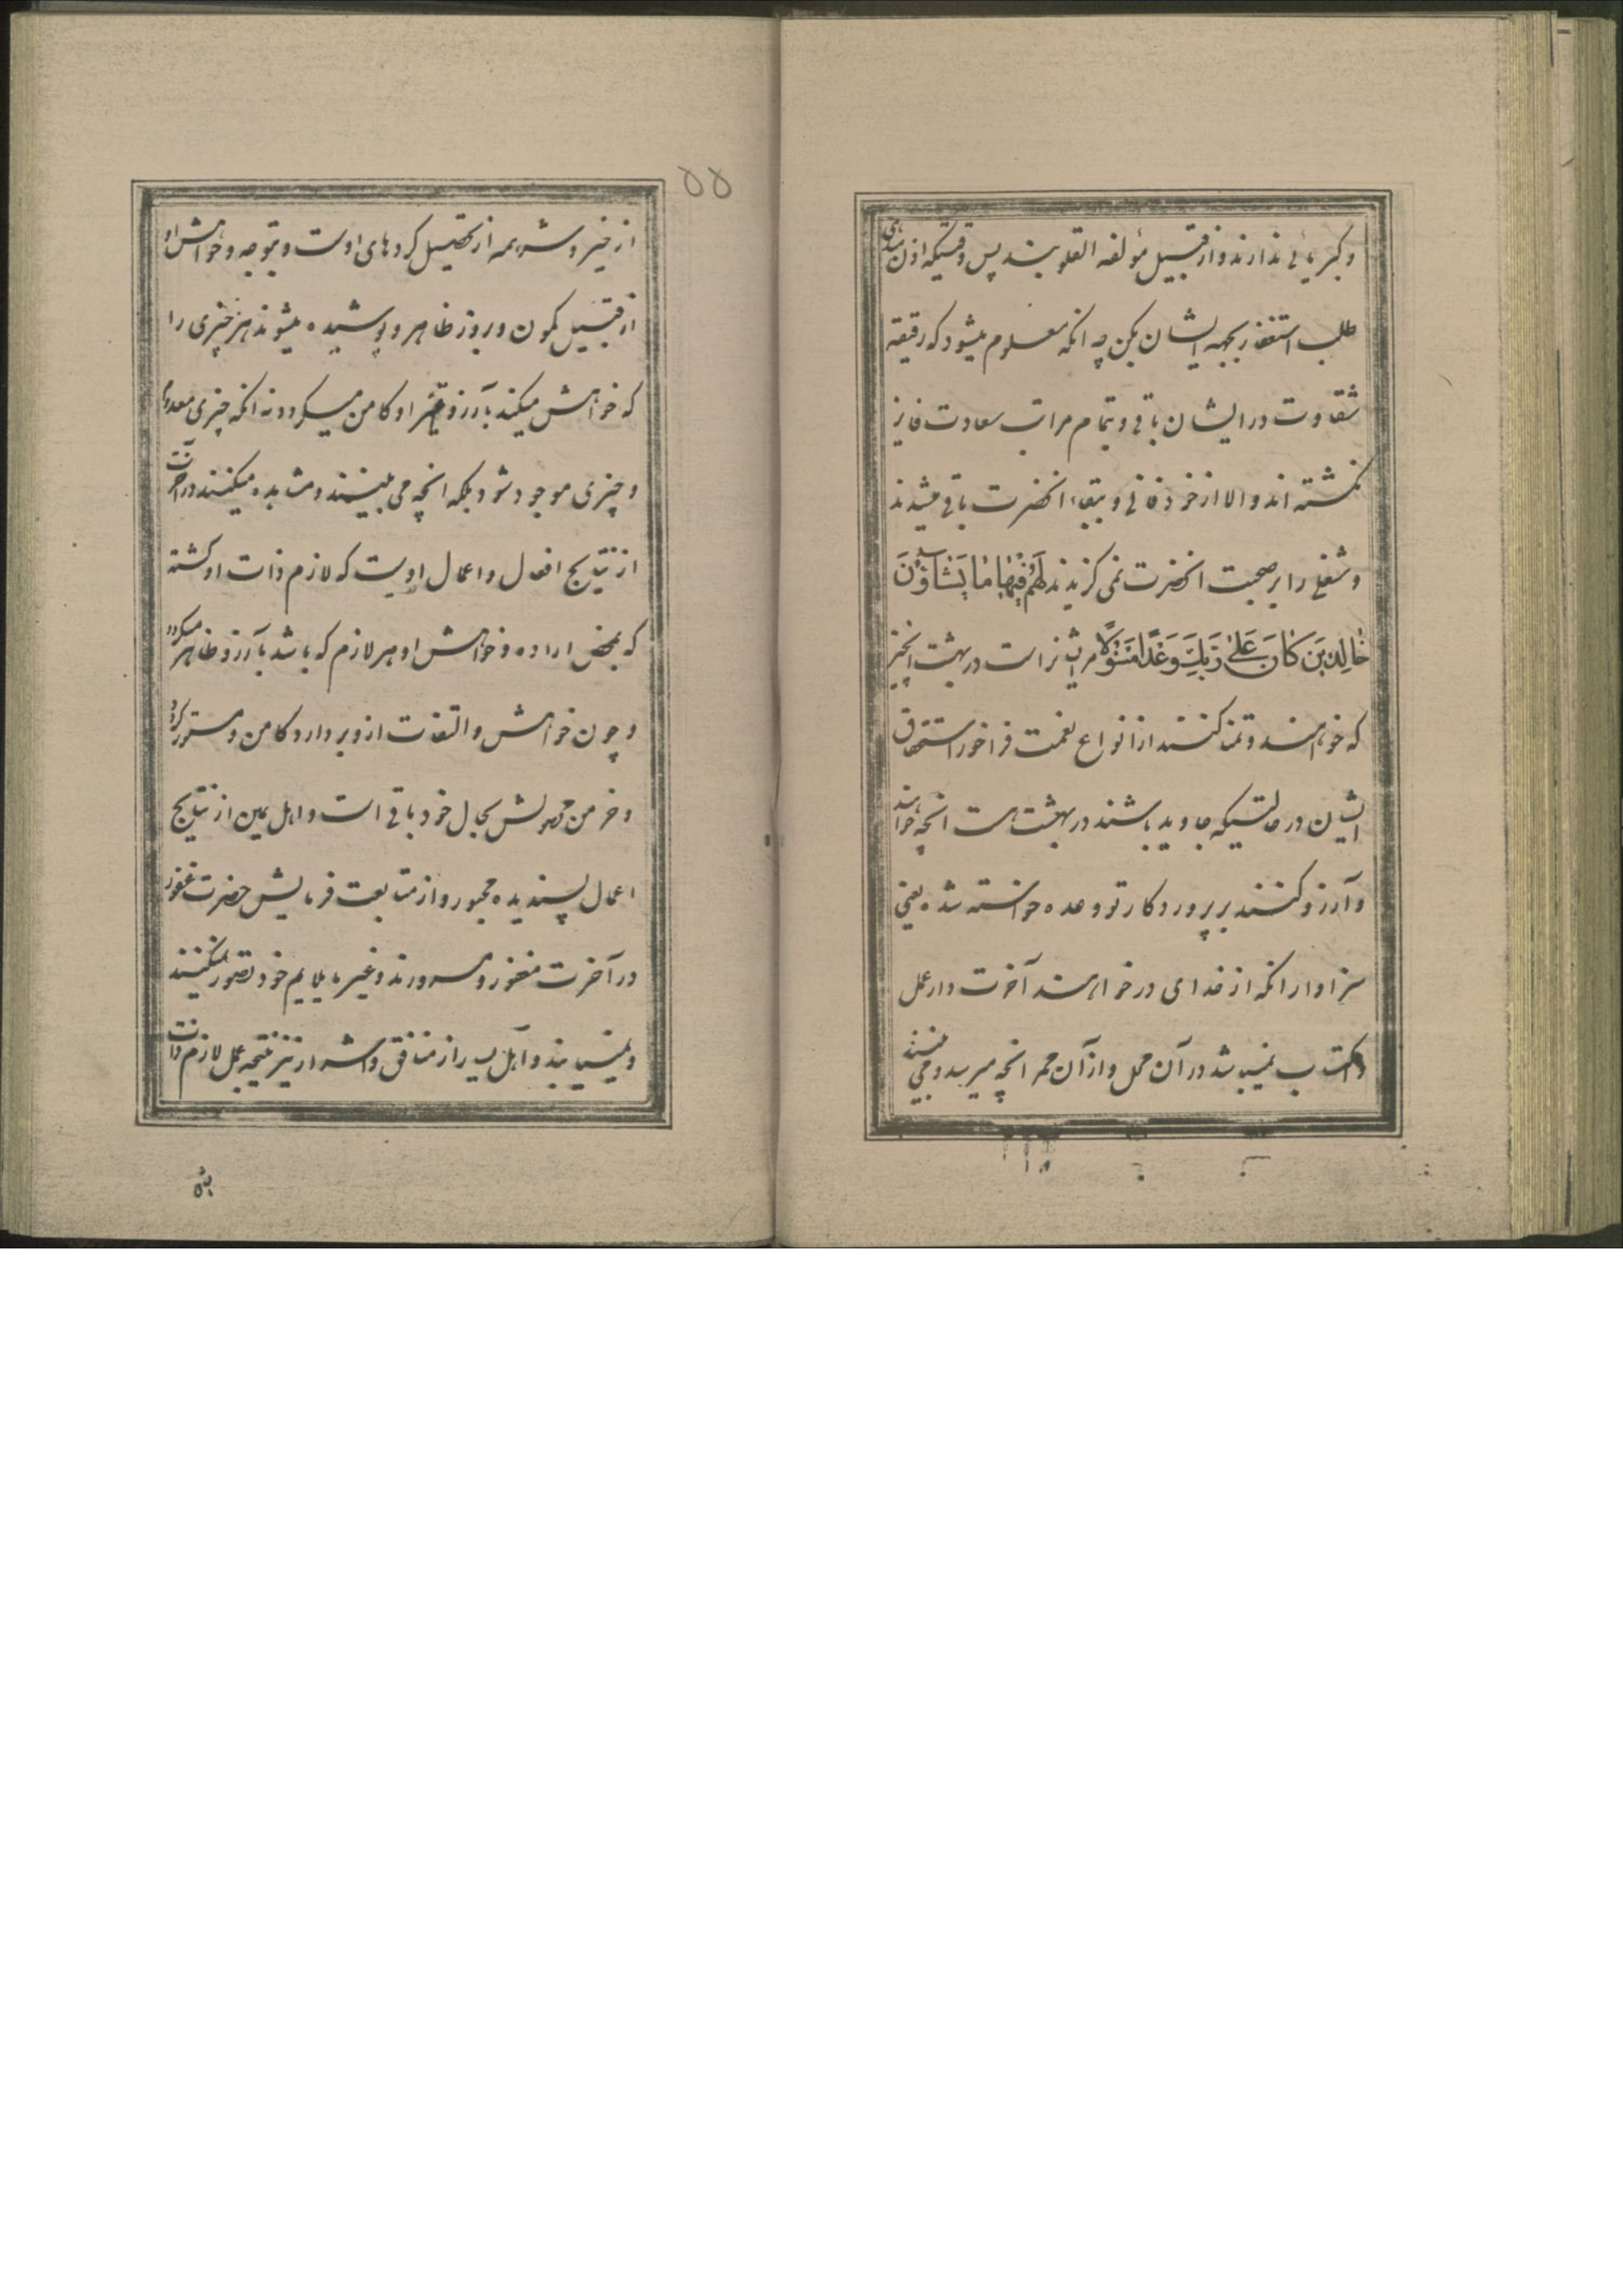 و کبریائی ندارند و از قبیل مؤلفه القلوبند پس وقتیکه اذن بدهی
طلب استغفار بجهه ایشان بکن چه انکه معلوم میشود که رقیقه
شقاوت در ایشان باقی و بتمام مراتب سعادت فایز
نکشته اند والا از خود فانی و ببقاء انحضرت باقی میشدند
و شغلی را بر صحبت انحضرت نمی کزیدند لَهُمْ فِیهٰا مٰا یَشٰاؤُنَ
خٰالِدِینَ کٰانَ عَلیٰ رَبِّکَ وَعْدًا مَسْؤُلًا مریشانراست در بهشت انچیز
که خواهند و تمنا کنند از انواع نعمت فراخور استحقاق
ایشان در حالتیکه جاوید باشند در بهشت هست انچه خواهند
و آرزو کنند بر پروردکار تو وعده خواسته شده یعنی
سزاوار انکه از خدای درخواهند آخرت دار عمل
و اکتساب نمیباشد در آن محل و از آن ممر انچه میرسد و می بینند
۵۵
از خیر و شر همه از تحصیل کردهای اوست و بتوجه و خواهش او
از قبیل کمون و بروز ظاهر و پوشیده میشوند هر چیزی را
که خواهش میکند بآرزو او کامن میکردد نه انکه چیزی معدوم
و چیزی موجود شود بلکه انچه می بینند و مشاهده میکنند در آخرت
از نتایج افعال و اعمال اویست که لازم ذات او کشته
که بمحض اراده و خواهش او هر لازم که باشد بآرزو ظاهر میکردد
و چون خواهش و التفات ازو بردارد کامن و مستور کردد
و خرمن بحال خود باقی است و اهل یمین از نتایج
اعمال پسندیده محبور و از متابعت فرمایش حضرت غفور
در آخرت مغفور و مسرورند و غیر ملایم خود تصور نمیکنند
و نمییابند و اهل یسار از منافق و اشرار نیز نتیجه عمل لازم ذات